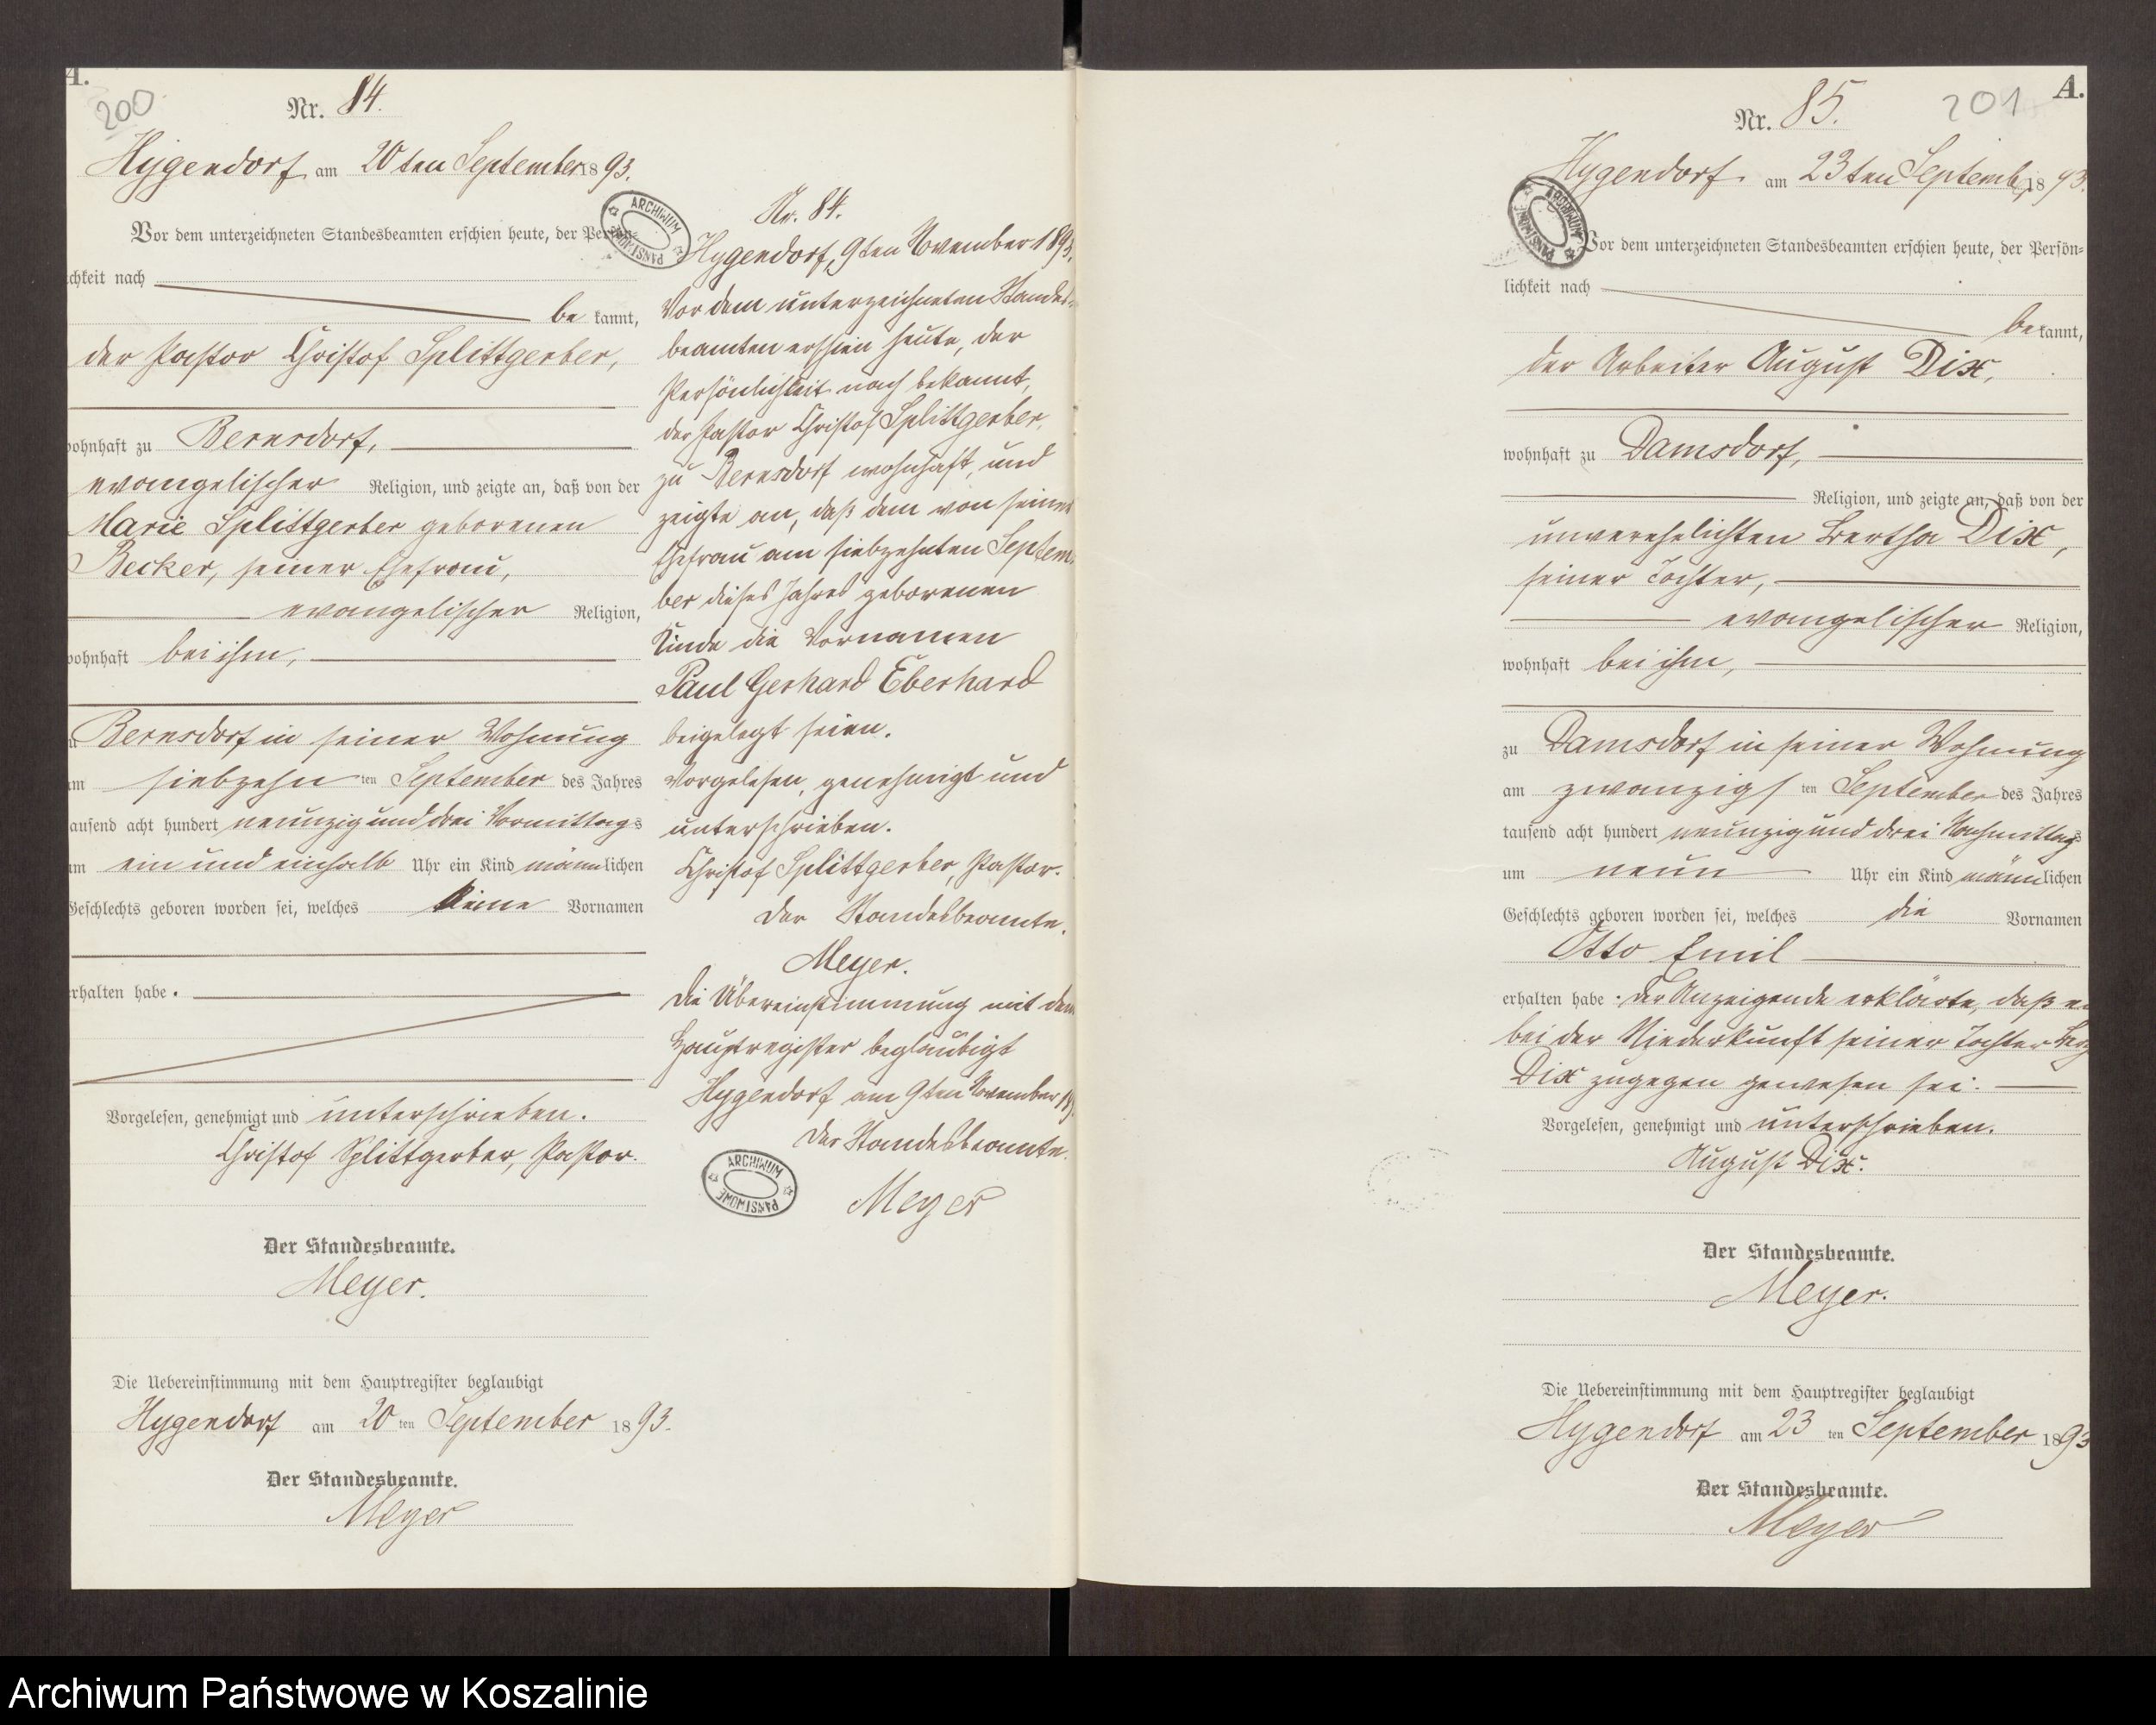 A.
200
Nr. 84.
Hygendorf am 20ten September 1893.
Vor dem unterzeichneten Standesbeamten erschien heute, der Persön-
lichkeit nach
be kannt,
der Pastor Christof Splittgerber,
wohnhaft zu Bernsdorf,
evangelischer Religion, und zeigte an, daß von der
Marie Splittgerber geborenen
Becker, seiner Ehefrau,
evangelischer Religion,
wohnhaft bei ihm,
zu Bernsdorf in seiner Wohnung
am siebzehn ten September des Jahres
tausend acht hundert neunzig und drei Vormittags
um ein und einhalb Uhr ein Kind männlichen
Geschlechts geboren worden sei, welches keine Vornamen
erhalten habe.
Vorgelesen, genehmigt und unterschrieben.
Christof Splittgerber, Pastor.
Der Standesbeamte.
Meyer.
Die Uebereinstimmung mit dem Hauptregister beglaubigt
Hygendorf am 20 ten September 1893.
Der Standesbeamte.
Meyer
ARCHIWUM PAŃSTWOWE
Nr. 84.
Hygendorf, 9ten November 1893.
Vor dem unterzeichneten Standes-
beamten erschien heute, der
Persönlichkeit nach bekannt,
der Pastor Christof Splittgerber,
zu Bernsdorf wohnhaft, und
zeigte an, daß dem von seiner
Ehefrau am siebzehnten Septem-
ber dieses Jahres geborenen
Kinde die Vornamen
Paul Gerhard Eberhard
beigelegt seien.
Vorgelesen, genehmigt und
unterschrieben.
Christof Splittgerber, Pastor.
Der Standesbeamte.
Meyer.
Die Übereinstimmung mit dem
Hauptregister beglaubigt
Hygendorf am 9ten November 18
Der Standesbeamte.
ARCHIWUM PAŃSTWOWE
Meyer
A.
201
Nr. 85.
Hygendorf am 23ten Septemb. 1893.
ARCHIWUM PAŃSTWOWE
Vor dem unterzeichneten Standesbeamten erschien heute, der Persön-
lichkeit nach
be kannt,
der Arbeiter August Dix,
wohnhaft zu Damsdorf,
Religion, und zeigte an, daß von der
unverehelichten Bertha Dix,
seiner Tochter,
evangelischer Religion,
wohnhaft bei ihm,
zu Damsdorf in seiner Wohnung
am zwanzigs ten September des Jahres
tausend acht hundert neunzig und drei Nachmittags
um neun Uhr ein Kind männlichen
Geschlechts geboren worden sei, welches die Vornamen
Otto Emil
erhalten habe. Der Anzeigende erklärte, daß er
bei der Niederkunft seiner Tochter
Dix zugegen gewesen sei.
Vorgelesen, genehmigt und unterschrieben.
August Dix.
Der Standesbeamte.
Meyer.
Die Uebereinstimmung mit dem Hauptregister beglaubigt
Hygendorf am 23 ten September 1893
Der Standesbeamte.
Meyer
Archiwum Państwowe w Koszalinie